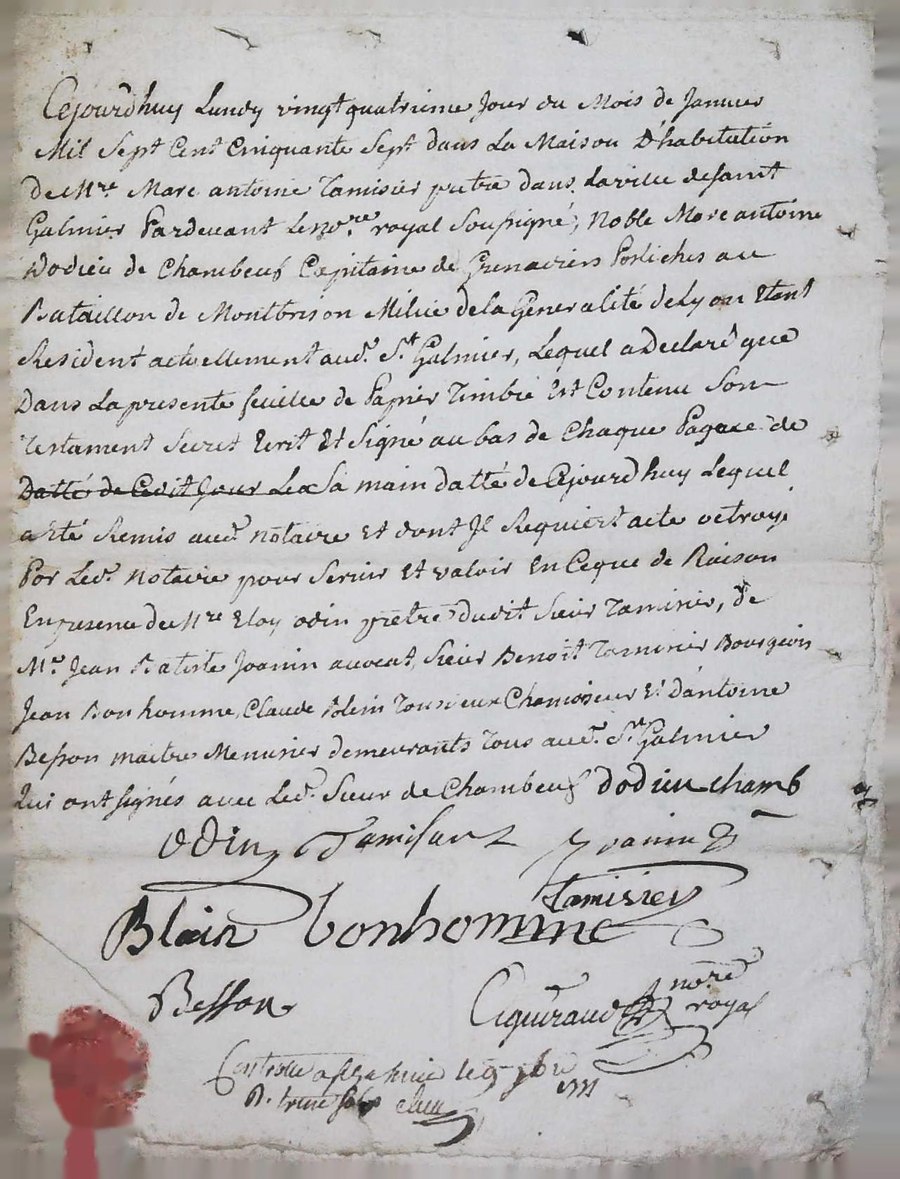 Cejourdhuy Lundy vingt quatrieme Jour du Mois de Janvier
Mil Sept Cent Cinquante Sept dans La Maison D'habitation
de Mre Marc antoine Tamisier pretre dans La ville de saint
Galmier Pardevant Le nore royal Soussigné, Noble Marc antoine
Dodieu de Chambeuf Capitaine de Grenadiers Postiches au
Bataillon de Montbrison Milice de la Generalité de Lyon Etant
Resident actuellement aud. St Galmier, Lequel a Declaré que
Dans La presente feuille de Papier Timbré Est Contenu Son
Testament Secret Ecrit Et Signé au bas de Chaque Pagace de
Sa main datté de Cejourdhuy Lequel
a Eté Remis aud. notaire Et dont Il Requiert acte octroyé
Par Led. Notaire pour Servir Et valoir En Ceque de Raison
En presence de Mre Eloy odin pretre dudit Sieur Tamisier, de
Me Jean Batiste Joanin avocat, Sieur Benoit Tamisier Bourgeois
Jean Bonhomme, Claude Blein Tous deux Chamoiseur Et d'antoine
Besson maitre Menusier demeurants Tous aud. St Galmier
Qui ont signés avec Led. Sieur de Chambeuf dodieu chamb
Odin Tamisier Joanin
Tamisier
Blein bonhomme
Besson nore
royal
Controllé a St